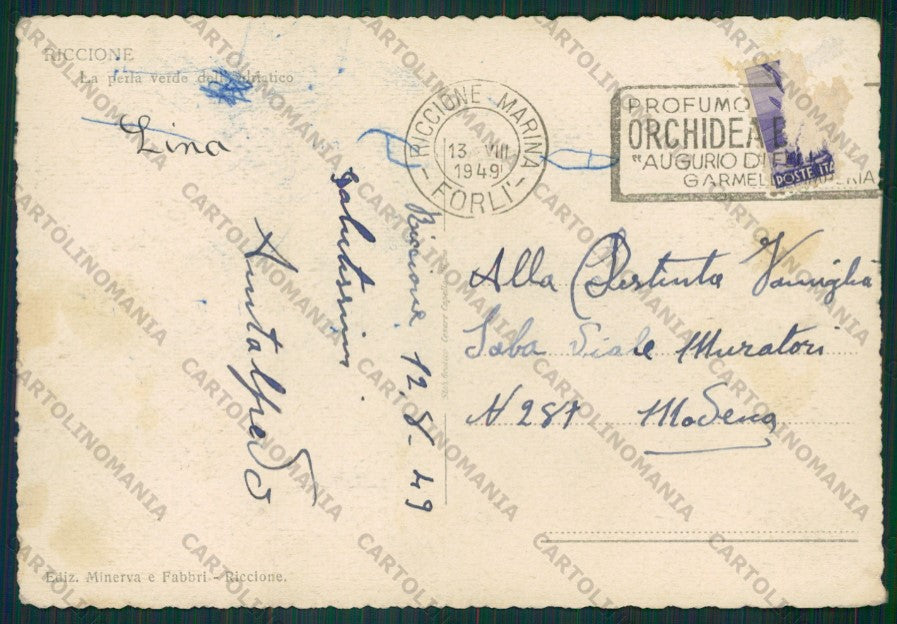 RICCIONE
La perla verde dell'Adriatico
Lina
RICCIONE MARINA
13 VIII
1949
- FORLI' -
PROFUMO
ORCHIDEA
"AUGURIO DI
GARMEL
POSTE ITA
Riccione 12.8-49
Salutissimi
Alla Destinta Famiglia
Saba Viale Muratori
N 287 Modena
Ediz. Minerva e Fabbri - Riccione.
CARTOLINOMANIA